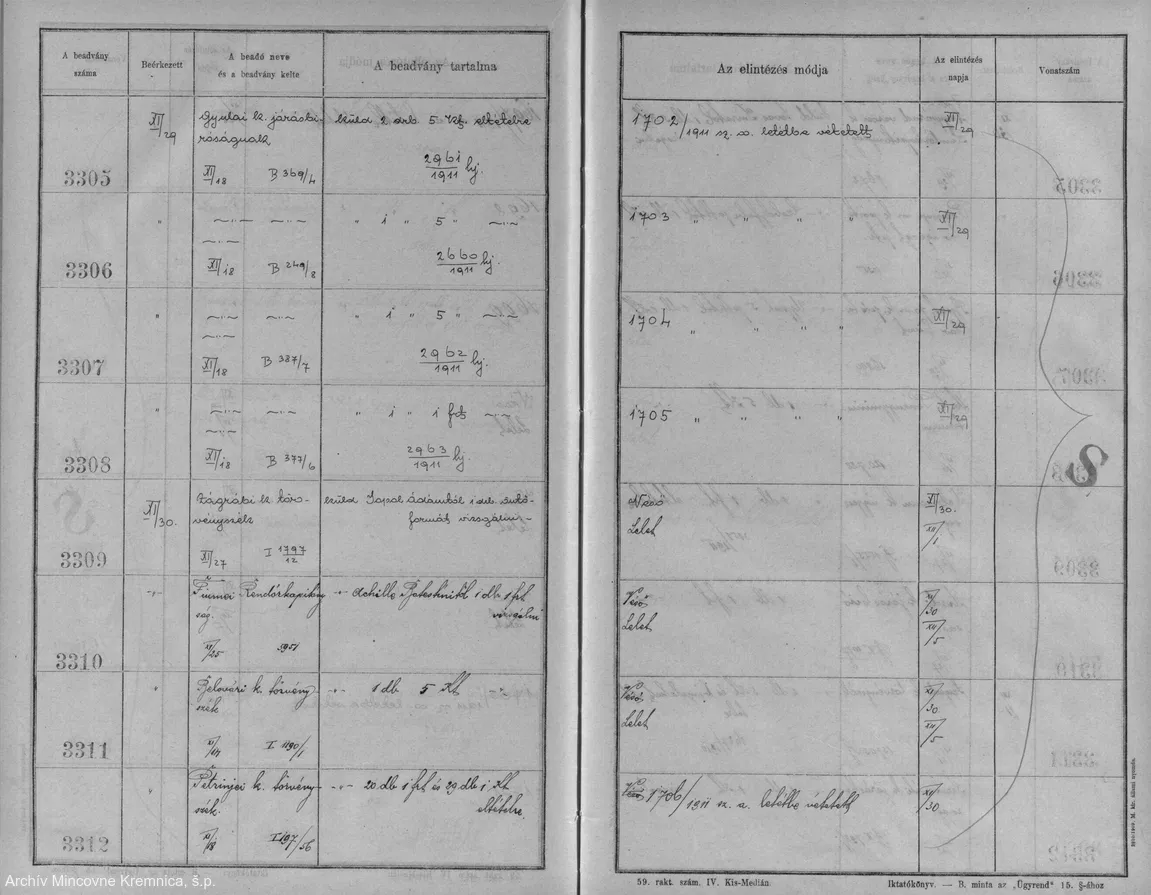 A beadvány
száma
Beérkezett
A beadó neve
és a beadvány kelte
A beadvány tartalma
Az elintézés módja
Az elintézés
napja
Vonatszám
XI/29
Gyulai k. járásbi-
róságnak
küld 2 drb 5 Kf. eltételre
1702/1911 sz. a. letétbe vétetett
XI/29
3305
XI/18 B 369/4
2961/1911 bj.
" —"— —"— " 1 " 5 " —"—
1703 " " " "
XI/29
—"—
3306
XI/18 B 249/8
2660/1911 bj.
" —"— —"— " 1 " 5 " —"—
1704 " " " "
XI/29
—"—
3307
XI/18 B 387/7
2962/1911 bj.
" —"— —"— " 1 " 1 frt —"—
1705 " " " "
XI/29
—"—
3308
XI/18 B 377/6
2963/1911 bj.
XI/30.
Zágrábi k. tör-
vényszék
küld Ádámtól 1 drb
vizsgálni
Véső
Lelet
XI/30.
XII/1
3309
XI/27 I 1797/12
—"—
Fiumei Rendőrkapitány-
ság.
—"— Achille 1 db 1 frt
vizsgálni
Véső
Lelet
XI/30
XII/5
3310
XI/25
"
Belovári k. törvény-
szék
—"— 1 db 5 Kt
Véső
Lelet
XI/30
XII/5
3311
XI/17 I 1190/1
"
Petrinjei k. törvény-
szék.
—"— 20 db 1 frt és 29 db 1 Kt
eltételre
1706/1911 sz. a. letétbe vétetett
XI/30
3312
XI/18 I 197/56
59. rakt. szám. IV. Kis-Medián.
Iktatókönyv. — B. minta az „Ügyrend" 15. §-ához
Archív Mincovne Kremnica, š.p.